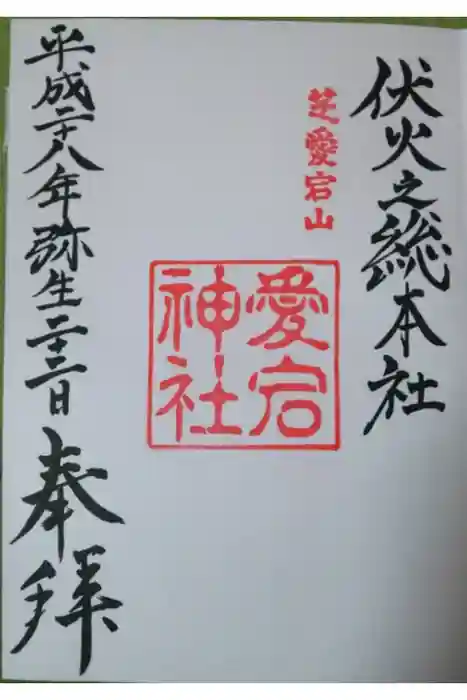 伏火之総本社
芝愛宕山
愛宕
神社
平成二十八年弥生二十三日
奉拝